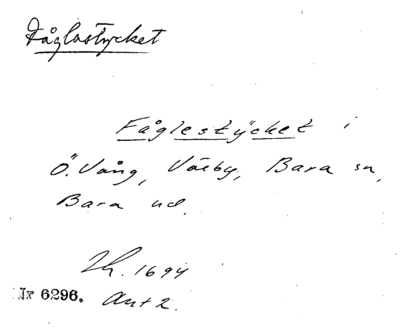 Fåglastycket
Fåglestÿcket i
Ö. Vång, Värby, Bara sn,
Bara hd.
Lh. 1694
Nr 6296. Ant 2.